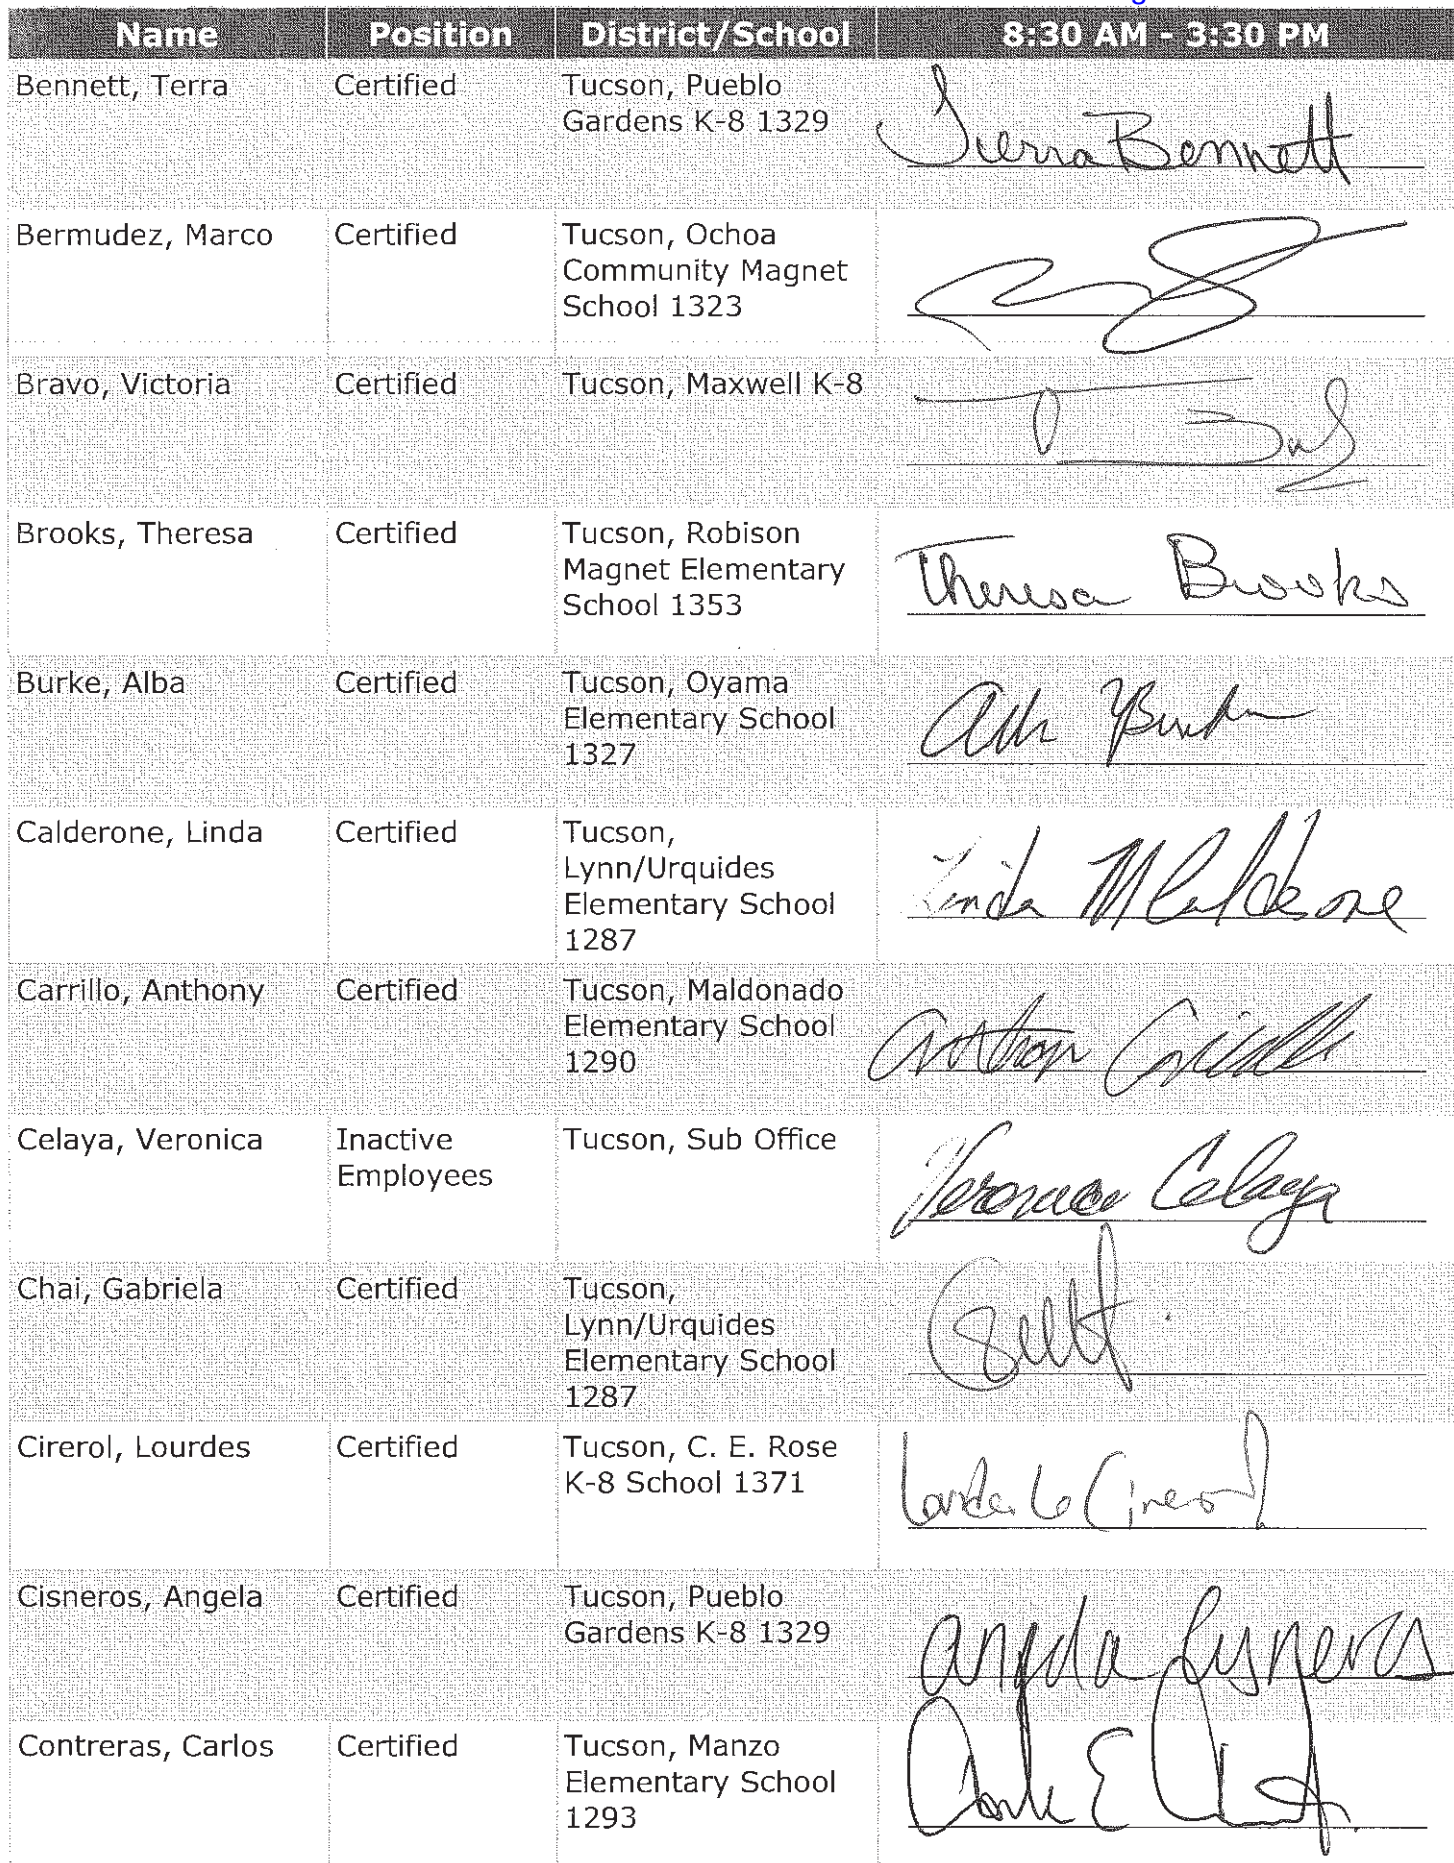 Name Position District/School 8:30 AM - 3:30 PM
Bennett, Terra Certified Tucson, Pueblo
Gardens K-8 1329
Sierra Bennett
Bermudez, Marco Certified Tucson, Ochoa
Community Magnet
School 1323
Bravo, Victoria Certified Tucson, Maxwell K-8
Brooks, Theresa Certified Tucson, Robison
Magnet Elementary
School 1353
Theresa Brooks
Burke, Alba Certified Tucson, Oyama
Elementary School
1327
Calderone, Linda Certified Tucson,
Lynn/Urquides
Elementary School
1287
Linda M Calderone
Carrillo, Anthony Certified Tucson, Maldonado
Elementary School
1290
Anthony Carrillo
Celaya, Veronica Inactive Tucson, Sub Office
Employees
Veronica Celaya
Chai, Gabriela Certified Tucson,
Lynn/Urquides
Elementary School
1287
Cirerol, Lourdes Certified Tucson, C. E. Rose
K-8 School 1371
Cirerol
Cisneros, Angela Certified Tucson, Pueblo
Gardens K-8 1329
Angela Cisneros
Contreras, Carlos Certified Tucson, Manzo
Elementary School
1293